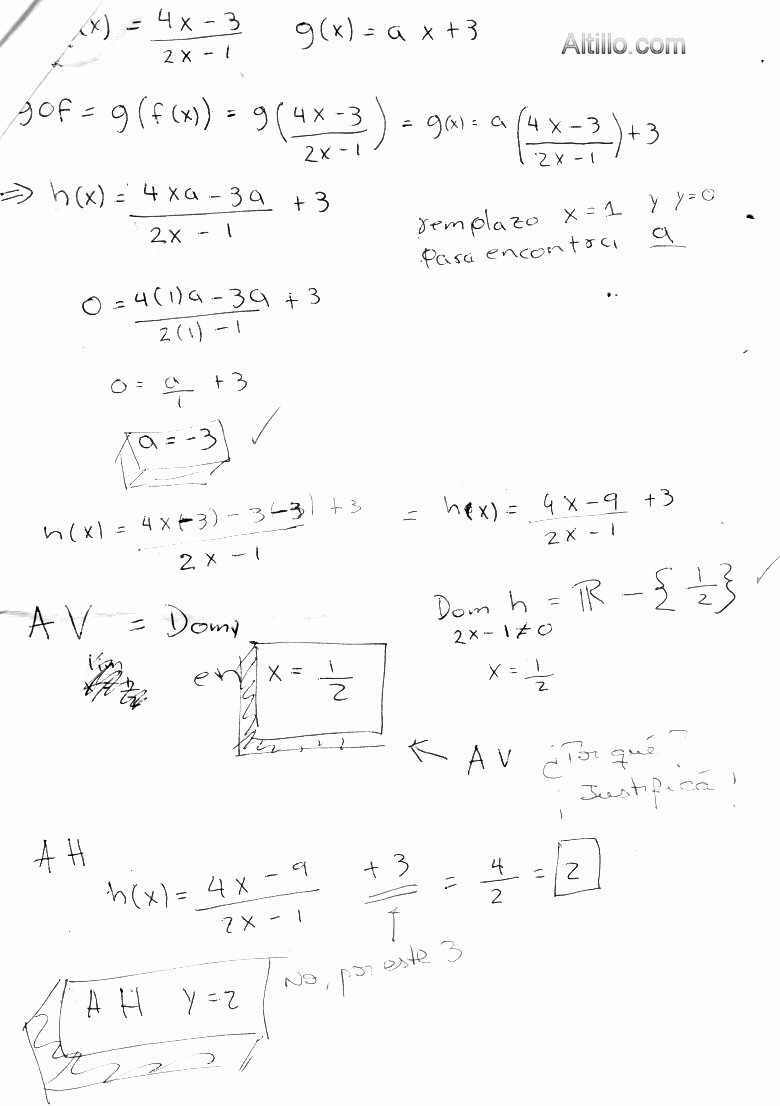 (x) = (4x - 3)/(2x - 1)   g(x) = a x + 3
Altillo.com
gof = g(f(x)) = g((4x - 3)/(2x - 1)) = g(x) = a((4x - 3)/(2x - 1)) + 3
=> h(x) = (4xa - 3a)/(2x - 1) + 3
remplazo x = 1 y y = 0
para encontra a
0 = (4(1)a - 3a)/(2(1) - 1) + 3
0 = a/1 + 3
a = -3 ✓
h(x) = (4x(-3) - 3(-3))/(2x - 1) + 3 = h(x) = (4x - 9)/(2x - 1) + 3
AV = Dom
Dom h = ℝ - {1/2} ✓
2x - 1 ≠ 0
en x = 1/2
x = 1/2
← AV ¿Por qué?
¡Justificá!
AH
h(x) = (4x - 9)/(2x - 1) + 3 = 4/2 = 2
↑
No, por este 3
AH y = 2